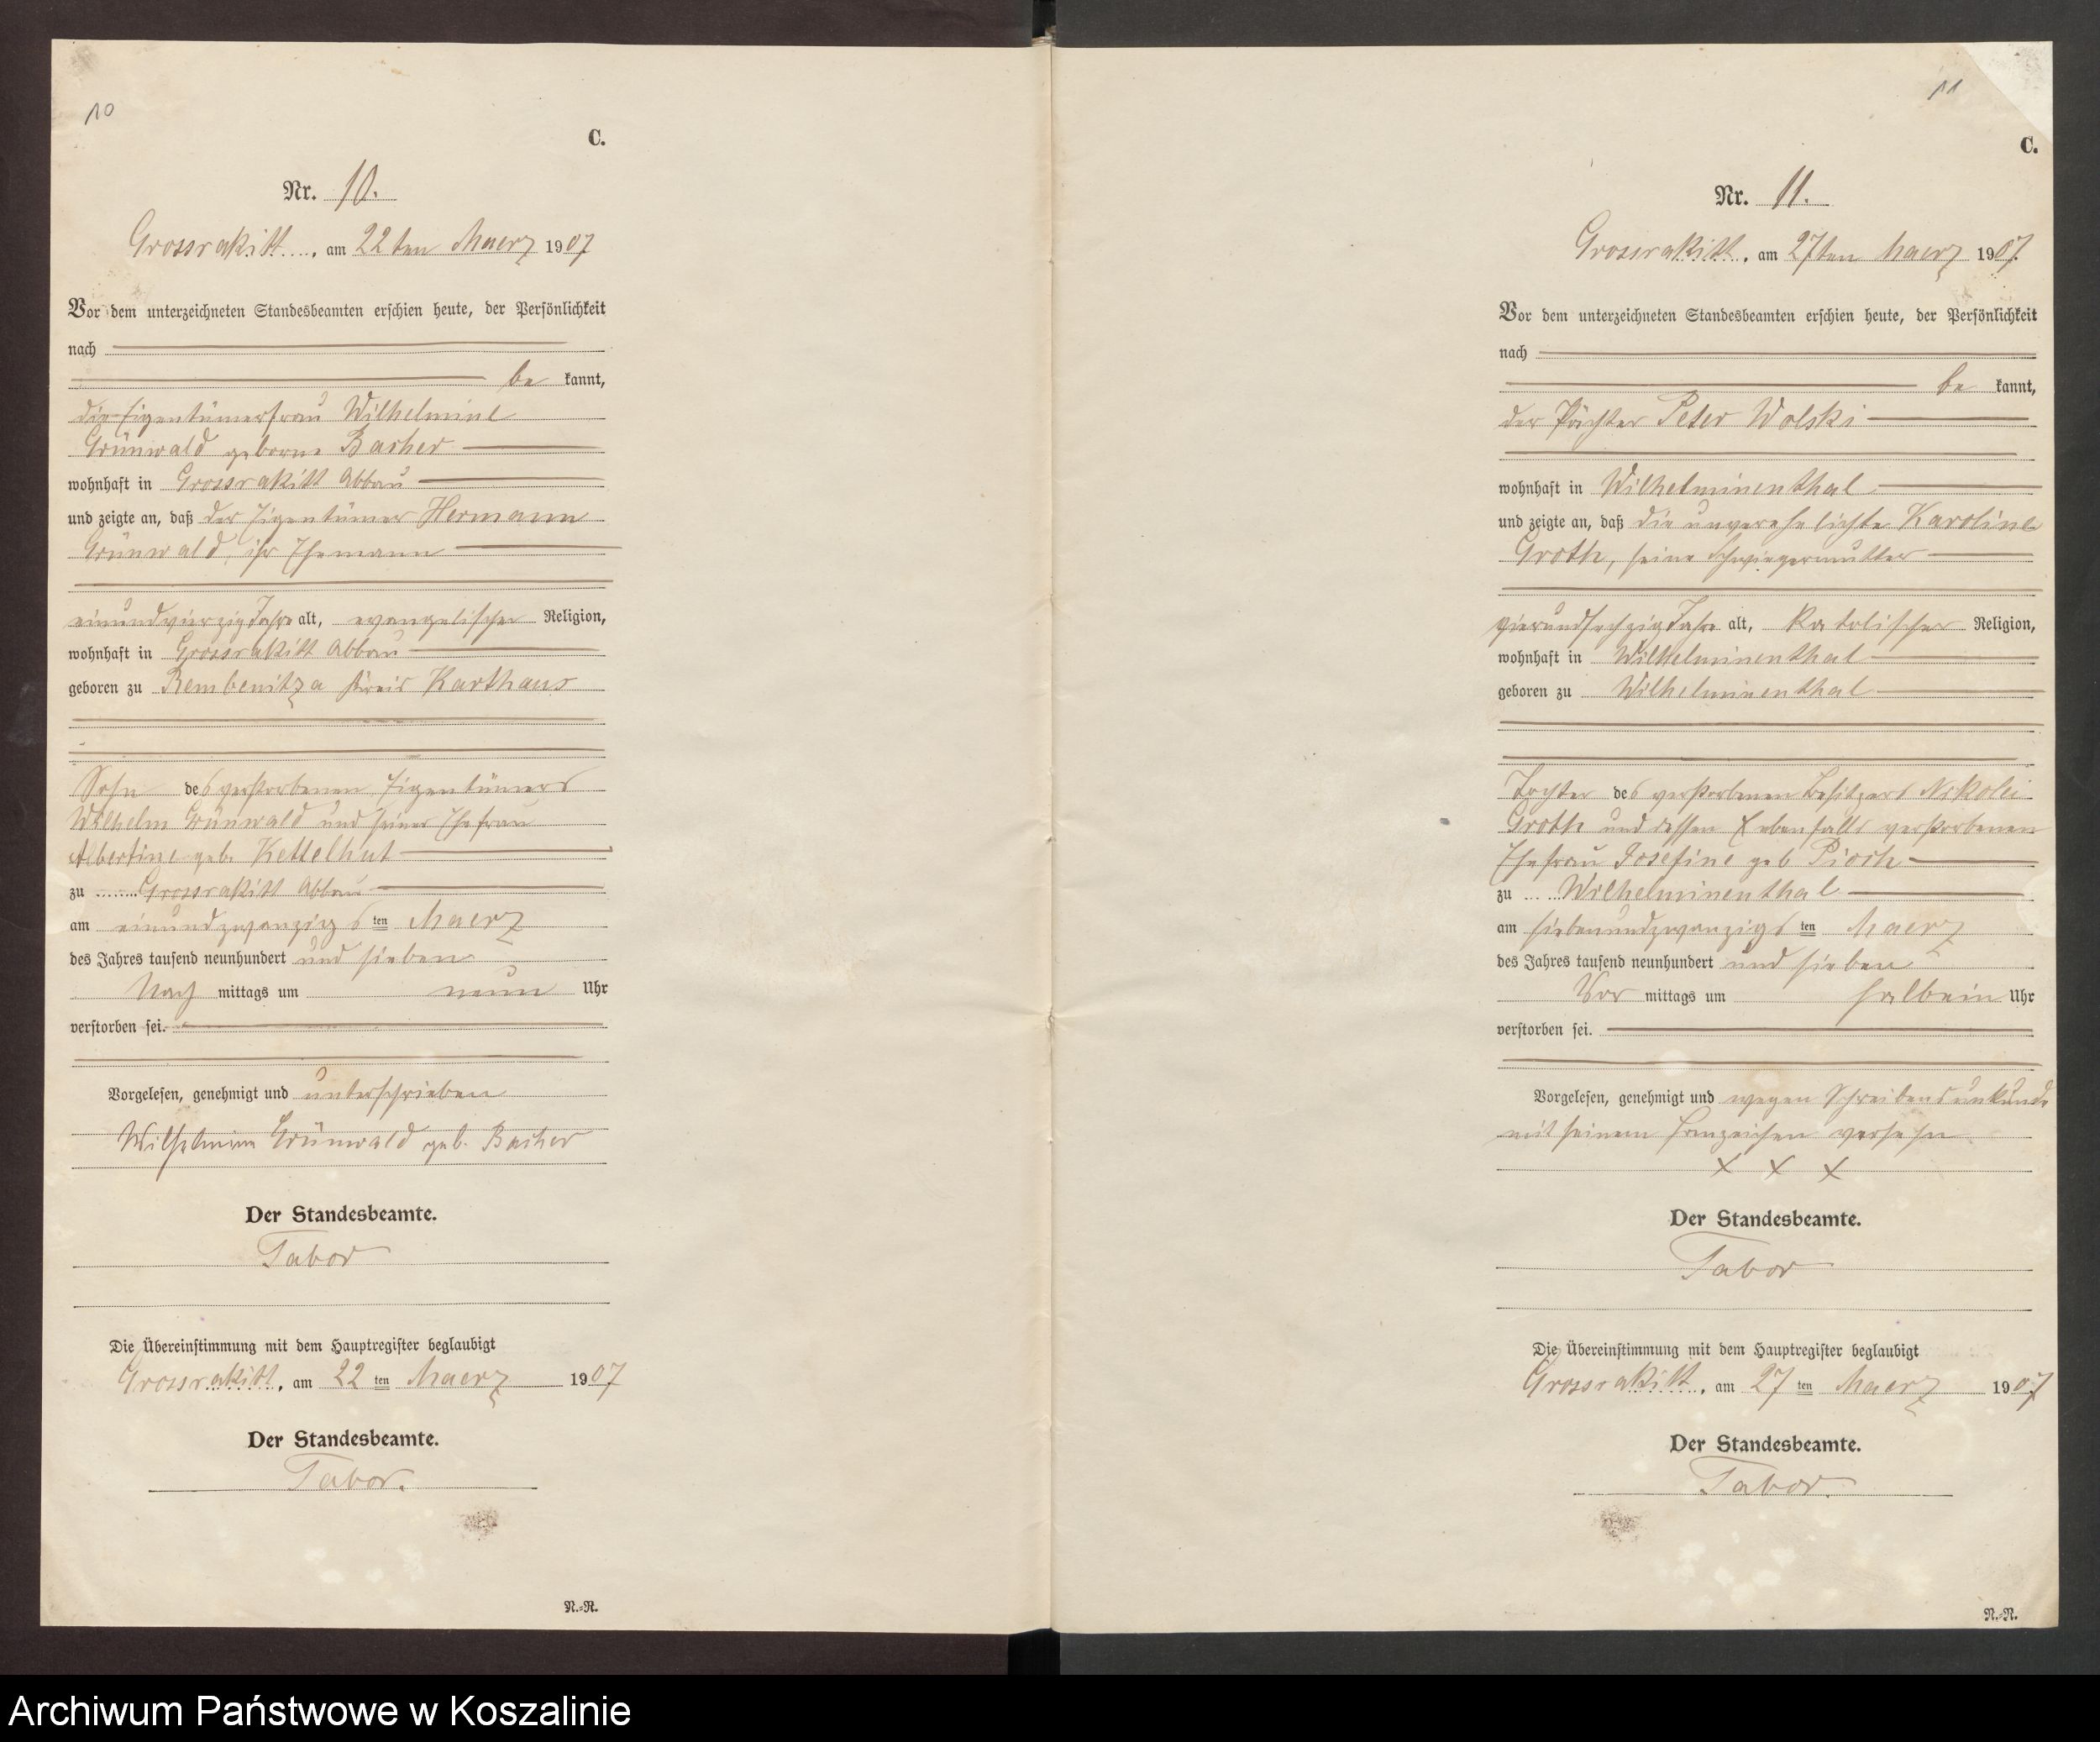 10
C.
Nr. 10.
Grossrakitt, am 22ten Maerz 1907
Vor dem unterzeichneten Standesbeamten erschien heute, der Persönlichkeit
nach
be kannt,
die Eigentümerfrau Wilhelmine
Grünwald geborne Bacher
wohnhaft in Grossrakitt Abbau
und zeigte an, daß der Eigentümer Hermann
Grünwald, ihr Ehemann
einundvierzig Jahre alt, evangelischer Religion,
wohnhaft in Grossrakitt Abbau
geboren zu Rembenitza Kreis Karthaus
Sohn des verstorbenen Eigentümers
Wilhelm Grünwald und seiner Ehefrau
Albertine geb. Kettelhut
zu Grossrakitt Abbau
am einundzwanzigs ten Maerz
des Jahres tausend neunhundert und sieben
Nach mittags um neun Uhr
verstorben sei.
Vorgelesen, genehmigt und unterschrieben
Wilhelmine Grünwald geb. Bacher
Der Standesbeamte.
Tabor
Die Übereinstimmung mit dem Hauptregister beglaubigt
Grossrakitt, am 22 ten Maerz 1907
Der Standesbeamte.
Tabor.
N.-R.
11
C.
Nr. 11.
Grossrakitt, am 27ten Maerz 1907.
Vor dem unterzeichneten Standesbeamten erschien heute, der Persönlichkeit
nach
be kannt,
der Pächter Peter Wolski
wohnhaft in Wilhelminenthal
und zeigte an, daß die unverehelichte Karoline
Groth, seine Schwiegermutter
vierundsechzig Jahre alt, katolischer Religion,
wohnhaft in Wilhelminenthal
geboren zu Wilhelminenthal
Tochter des verstorbenen Besitzers Nikolei
Groth und dessen ebenfalls verstorbenen
Ehefrau Josefine geb Pioch
zu Wilhelminenthal
am siebenundzwanzigs ten Maerz
des Jahres tausend neunhundert und sieben
Vor mittags um halbein Uhr
verstorben sei.
Vorgelesen, genehmigt und wegen Schreibensunkunde
mit seinem Handzeichen versehn
x x x
Der Standesbeamte.
Tabor
Die Übereinstimmung mit dem Hauptregister beglaubigt
Grossrakitt, am 27 ten Maerz 1907
Der Standesbeamte.
Tabor.
N.-R.
Archiwum Państwowe w Koszalinie